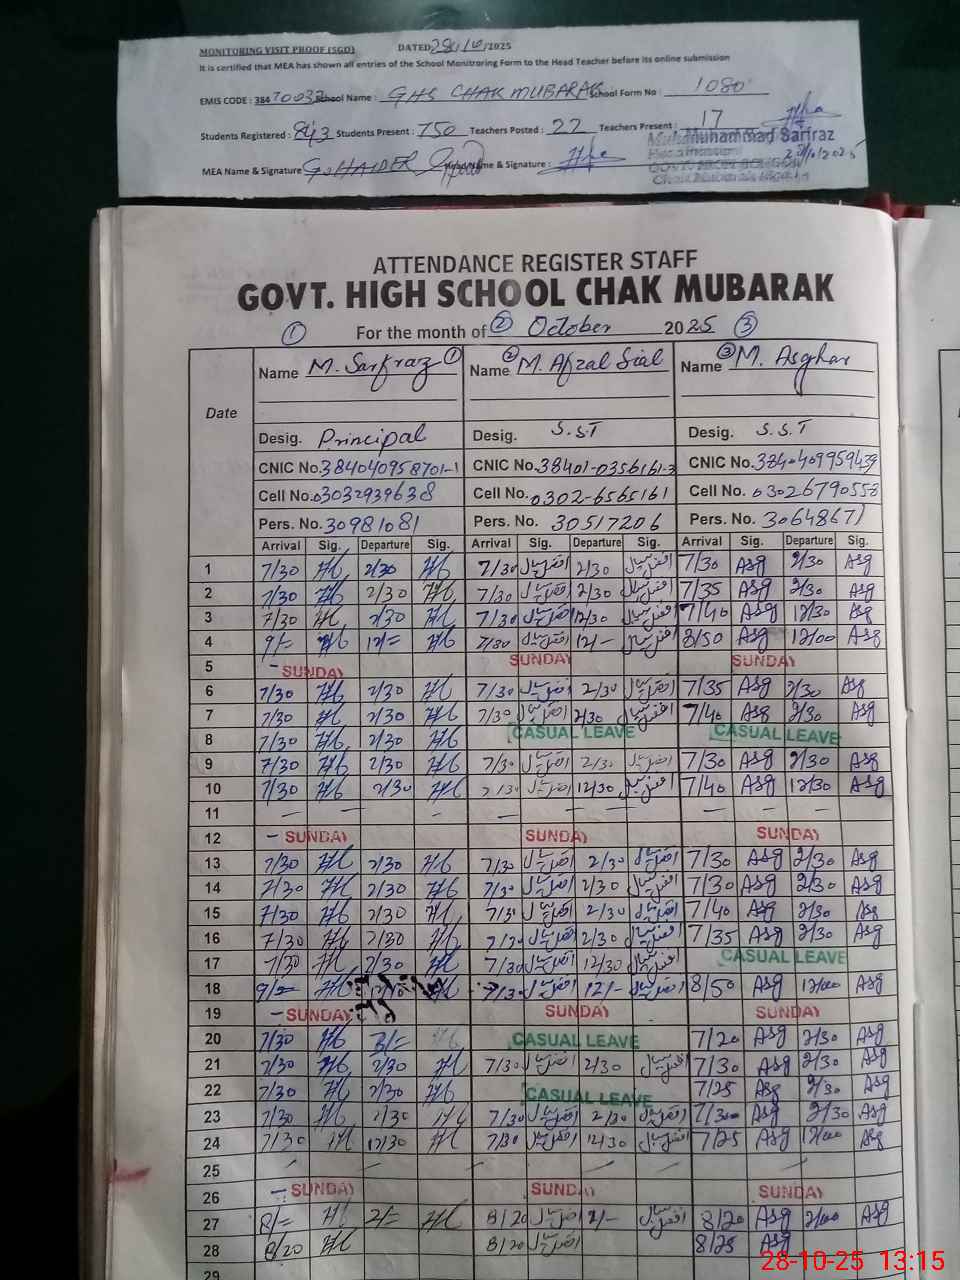 MONITORING VISIT PROOF (SGD) DATED 28/10/2025
It is certified that MEA has shown all entries of the School Monitroring Form to the Head Teacher before its online submission
EMIS CODE : 38470032 School Name : GHS CHAK MUBARAK School Form No : 1080
Students Registered : 843 Students Present : 750 Teachers Posted : 22 Teachers Present : 17
Muhammad Sarfraz
MEA Name & Signature G. HAIDER Name & Signature :
28/10/2025
ATTENDANCE REGISTER STAFF
GOVT. HIGH SCHOOL CHAK MUBARAK
① For the month of ② October 2025 ③
Date Name M. Sarfraz ① Name ② M. Afzal Sial Name ③ M. Asghar
Desig. Principal Desig. S.ST Desig. S.S.T
CNIC No. 384040958701-1 CNIC No. 38401-0356161-3 CNIC No. 384040995943
Cell No. 03032939638 Cell No. 0302-6565161 Cell No. 03026790558
Pers. No. 30981081 Pers. No. 30517206 Pers. No. 3064867
Arrival Sig. Departure Sig. Arrival Sig. Departure Sig. Arrival Sig. Departure Sig.
1 7/30 2/30 7/30 افضل سیال 2/30 افضل سیال 7/30 Asg 2/30 Asg
2 7/30 2/30 7/30 افضل سیال 2/30 افضل سیال 7/35 Asg 2/30 Asg
3 7/30 2/30 7/30 افضل سیال 12/30 افضل سیال 7/40 Asg 12/30 Asg
4 9/= 12/= 7/30 افضل سیال 12/- افضل سیال 8/50 Asg 12/00 Asg
5 - SUNDAY SUNDAY SUNDAY
6 7/30 2/30 7/30 افضل سیال 2/30 افضل سیال 7/35 Asg 2/30 Asg
7 7/30 2/30 7/30 افضل سیال 2/30 افضل سیال 7/40 Asg 2/30 Asg
8 7/30 2/30 CASUAL LEAVE CASUAL LEAVE
9 7/30 2/30 7/30 افضل سیال 2/30 افضل سیال 7/30 Asg 2/30 Asg
10 7/30 2/30 7/30 افضل سیال 12/30 افضل سیال 7/40 Asg 12/30 Asg
11
12 - SUNDAY SUNDAY SUNDAY
13 7/30 2/30 7/30 افضل سیال 2/30 افضل سیال 7/30 Asg 2/30 Asg
14 7/30 2/30 7/30 افضل سیال 2/30 افضل سیال 7/30 Asg 2/30 Asg
15 7/30 2/30 7/30 افضل سیال 2/30 افضل سیال 7/40 Asg 2/30 Asg
16 7/30 2/30 7/30 افضل سیال 2/30 افضل سیال 7/35 Asg 2/30 Asg
17 7/30 2/30 7/30 افضل سیال 12/30 افضل سیال CASUAL LEAVE
18 9/= 7/30 افضل سیال 12/- افضل سیال 8/50 Asg 12/00 Asg
19 - SUNDAY SUNDAY SUNDAY
20 7/30 CASUAL LEAVE 7/20 Asg 2/30 Asg
21 7/30 2/30 7/30 افضل سیال 2/30 افضل سیال 7/30 Asg 2/30 Asg
22 7/30 2/30 CASUAL LEAVE 7/25 Asg 2/30 Asg
23 7/30 2/30 7/30 افضل سیال 2/30 افضل سیال 7/30 Asg 2/30 Asg
24 7/30 12/30 7/30 افضل سیال 12/30 افضل سیال 7/25 Asg 12/00 Asg
25
26 - SUNDAY SUNDAY SUNDAY
27 8/= 2/= 8/20 افضل سیال 2/- افضل سیال 8/20 Asg 2/00 Asg
28 8/20 8/20 افضل سیال 8/25 Asg
29
28-10-25 13:15